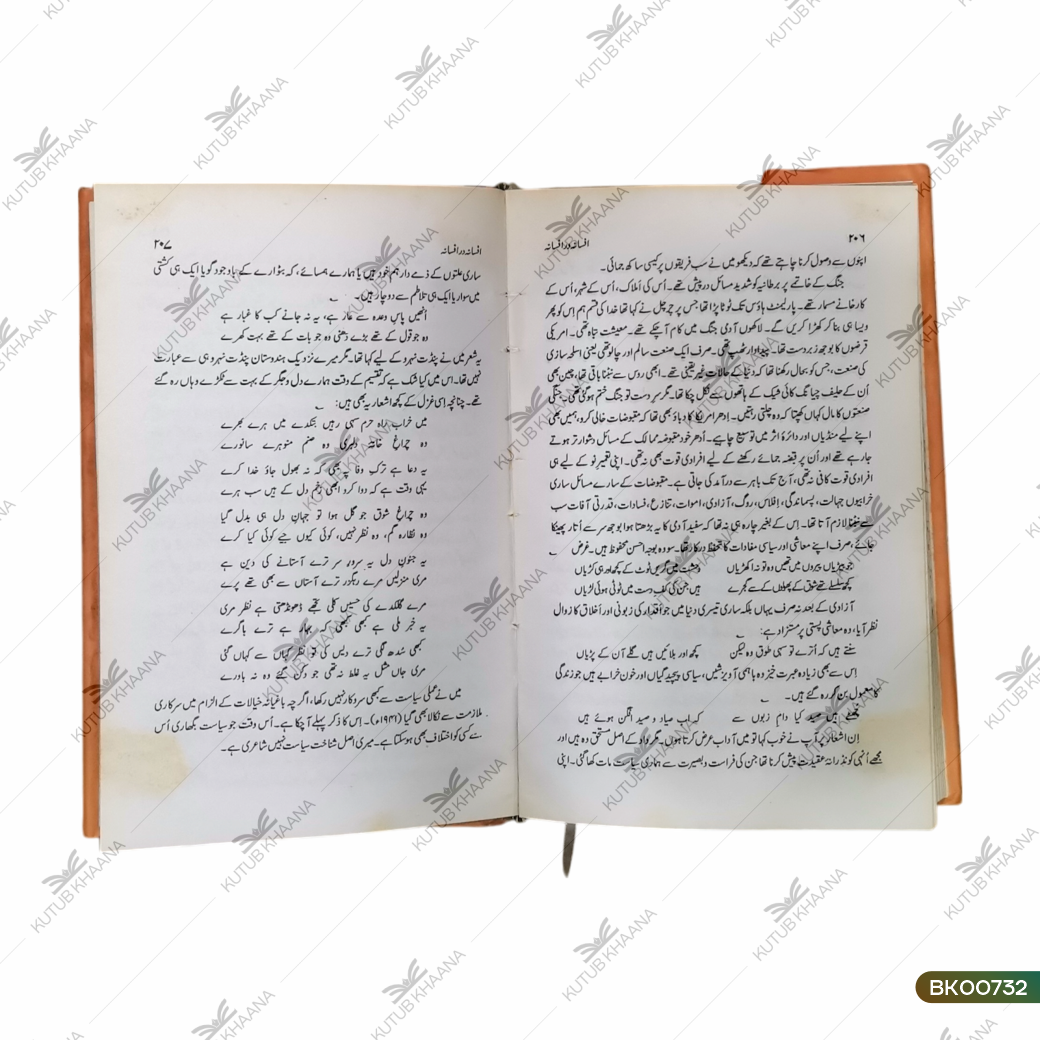 ۲۰۶
افسانہ در افسانہ
اپنوں سے وصول کرنا چاہتے تھے کہ دیکھو میں نے سب فریقوں پر کیسی ساکھ جمائی۔
جنگ کے خاتمے پر برطانیہ کو شدید مسائل درپیش تھے۔ اُس کی اَملاک، اُس کے شہر، اُس کے
کارخانے مسمار تھے۔ پارلیمنٹ ہاؤس تک ٹوٹا پڑا تھا جس پر چرچل نے کہا تھا خدا کی قسم ہم اِس کو پھر
ویسا ہی بنا کر کھڑا کریں گے۔ لاکھوں آدمی جنگ میں کام آچکے تھے۔ معیشت تباہ تھی۔ امریکی
قرضوں کا بوجھ زبردست تھا۔ پیداوار ٹھپ تھی۔ صرف ایک صنعت سالم اور چالو تھی یعنی اسلحہ سازی
کی صنعت، جس کو بحال رکھنا تھا کہ دنیا کے حالات غیر یقینی تھے۔ ابھی روس سے نمٹنا باقی تھا، چین بھی
اُن کے حلیف چیانگ کائی شیک کے ہاتھوں سے نکل چکا تھا۔ مگر سرِدست تو جنگ ختم ہو گئی تھی۔ جنگی
صنعتوں کا مال کہاں کھپتا کہ وہ چلتی رہتیں۔ اِدھر امریکا کا دباؤ بھی تھا کہ مقبوضات خالی کرو، ہمیں بھی
اپنے لیے منڈیاں اور دائرۂ اثر میں توسیع چاہیے۔ اُدھر خود مقبوضہ ممالک کے مسائل دشوار تر ہوتے
جا رہے تھے اور اُن پر قبضہ جمائے رکھنے کے لیے افرادی قوت بھی نہ تھی۔ اپنی تعمیرِ نو کے لیے ہی
افرادی قوت کافی نہ تھی، آج تک باہر سے درآمد کی جاتی ہے۔ مقبوضات کے سارے مسائل ساری
خرابیوں جہالت، پسماندگی، اِفلاس، روگ، آزادی، اموات، تنازع، فسادات، قدرتی آفات سب
سے نمٹنا لازم آتا تھا۔ اِس کے بغیر چارہ ہی نہ تھا کہ سفید آدمی کا یہ بڑھتا ہوا بوجھ سر سے اُتار پھینکا
جائے، صرف اپنے معاشی اور سیاسی مفادات کا تحفظ درکار تھا۔ سو وہ بوجہ احسن محفوظ ہیں۔ غرض
جو بیڑیاں پیروں میں تھیں وہ تو نہ اکھڑیاں وحشت میں گریں ٹوٹ کے کچھ اور ہی کڑیاں
کچھ سلسلے تھے شوق کے پھولوں کے سے گجرے ہیں جن کی کفِ دست میں ٹوٹی ہوئی لڑیاں
آزادی کے بعد نہ صرف یہاں بلکہ ساری تیسری دنیا میں جو اَقدار کی زبونی اور اَخلاق کا زوال
نظر آیا، وہ معاشی پستی پر مستزاد ہے:
سنتے ہیں کہ اُترے تو سہی طوق وہ لیکن کچھ اور بلائیں ہیں گلے آن کے پڑیاں
اِس سے بھی زیادہ عبرت خیز وہ باہمی آویزشیں، سیاسی پیچیدگیاں اور خون خرابے ہیں جو زندگی
کا معمول بن کر رہ گئے ہیں۔
چھٹے ہیں صید کیا دام زبوں سے کہ اب صیاد و صید افگن ہوئے ہیں
اِن اشعار پر آپ نے خوب کہا تو میں آداب عرض کرتا ہوں۔ مگر داد کے اصل مستحق وہ ہیں اور
مجھے اُنہی کو نذرانۂ عقیدت پیش کرنا تھا جن کی فراست و بصیرت سے ہماری سیاست مات کھا گئی۔ اپنی
۲۰۷
افسانہ در افسانہ
ساری علتوں کے ذمے دار ہم خود ہیں یا ہمارے ہمسائے، کہ بٹوارے کے باوجود گویا ایک ہی کشتی
میں سوار یا ایک ہی تلاطم سے دوچار ہیں۔
اُنھیں پاسِ وعدہ سے عار ہے، یہ نہ جانے کب کا غبار ہے
وہ جو قول کے تھے بڑے دھنی وہ جو بات کے تھے بہت کھرے
یہ شعر میں نے پنڈت نہرو کے لیے کہا تھا۔ مگر میرے نزدیک ہندوستان پنڈت نہرو ہی سے عبارت
نہیں تھا۔ اس میں کیا شک ہے کہ تقسیم کے وقت ہمارے دل و جگر کے بہت سے ٹکڑے وہاں رہ گئے
تھے۔ چنانچہ اِسی غزل کے کچھ اشعار یہ بھی ہیں:
میں خرابِ راہِ حرم سہی رہیں بتکدے میں ہرے بھرے
وہ چراغِ خانۂ دلبری وہ صنم منوہرے سانورے
یہ دعا ہے ترکِ وفا پہ بھی کہ نہ بھول جاؤ خدا کرے
یہی وقت ہے کہ دوا کرو ابھی زخم دل کے ہیں سب ہرے
وہ چراغِ شوق جو گل ہوا تو جہانِ دل ہی بدل گیا
وہ نظارہ گم، وہ نظر نہیں، کوئی کیوں جیے کوئی کیا کرے
یہ جنونِ دل یہ سرود سر ترے آستانے کی دین ہے
مری منزلیں مرے رہگزر ترے آستاں سے بھی تھے پرے
مرے گلکدے کی حسیں کلی تجھے ڈھونڈھتی ہے نظر مری
یہ خبر ملی ہے کبھی کبھی کہ بہار ہے ترے باگرے
کبھی سُدھ ملی ترے دیس کی تو نظر کہاں سے کہاں گئی
مری جاں مثل یہ غلط نہ تھی جو دن گئے وہ نہ باورے
میں نے عملی سیاست سے کبھی سروکار نہیں رکھا، اگرچہ باغیانہ خیالات کے الزام میں سرکاری
ملازمت سے نکالا بھی گیا (۱۹۳۶ء)۔ اِس کا ذکر پہلے آچکا ہے۔ اُس وقت جو سیاست بگھاری اُس
سے کسی کو اختلاف بھی ہو سکتا ہے۔ میری اصل شناخت سیاست نہیں شاعری ہے۔
KUTUB KHAANA
BK00732